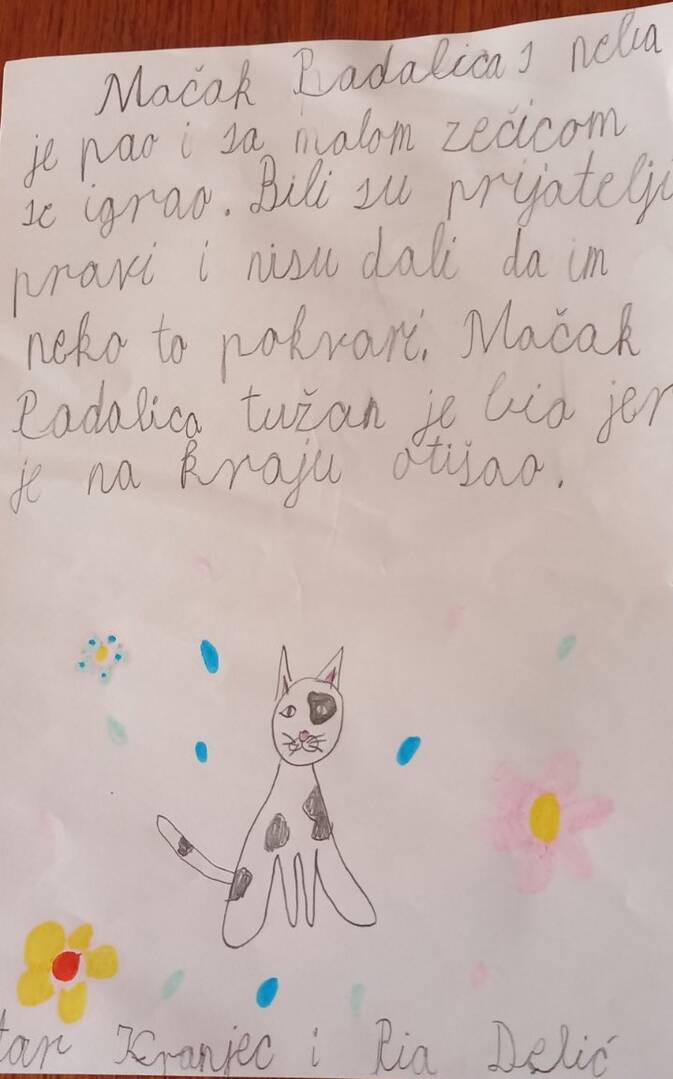 Mačak Padalica s neba
je pao i sa malom zečicom
se igrao. Bili su prijatelji
pravi i nisu dali da im
neko to pokvari. Mačak
Padalica tužan je bio jer
je na kraju otišao.
tar Kranjec i Pia Delić